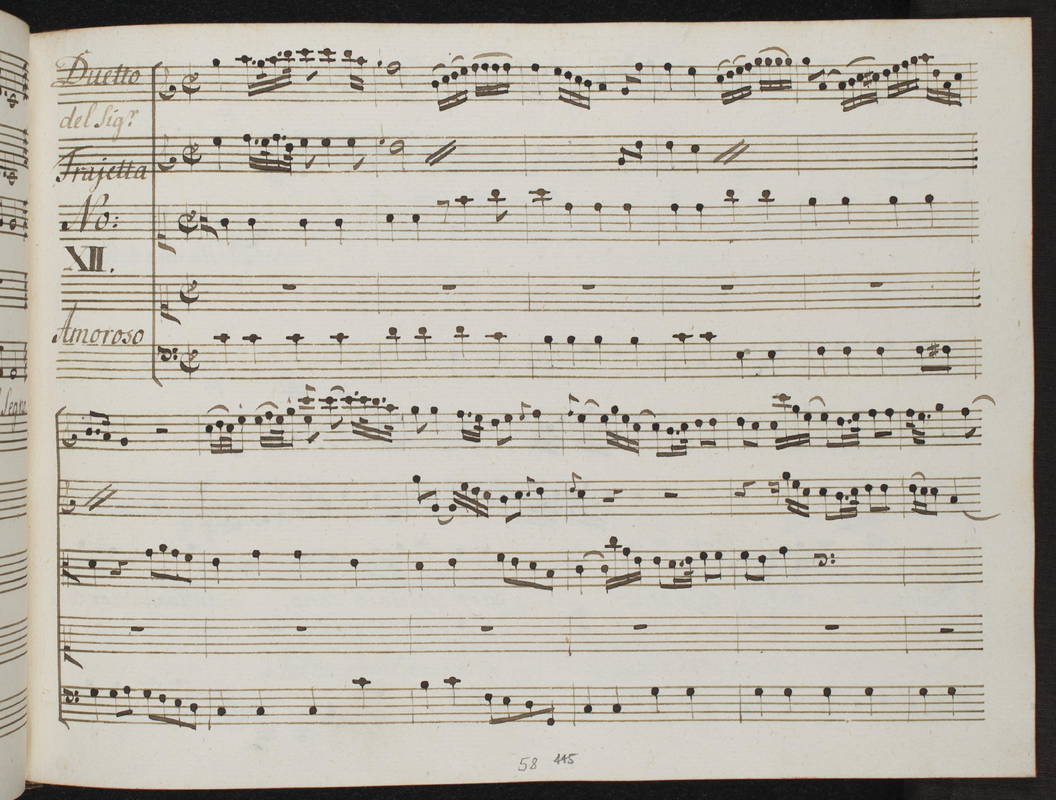 Duetto
del Sigr
Trajetta
No:
XII.
Amoroso
Segno
58 445